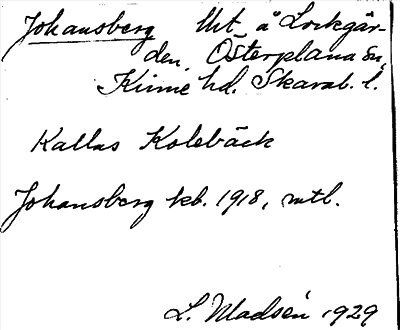 Johansberg lht å Lockgår-
den, Österplana sn,
Kinne hd. Skarab. l.
Kallas Kolebäck
Johansberg kb. 1918, mtl.
L. Madsén 1929